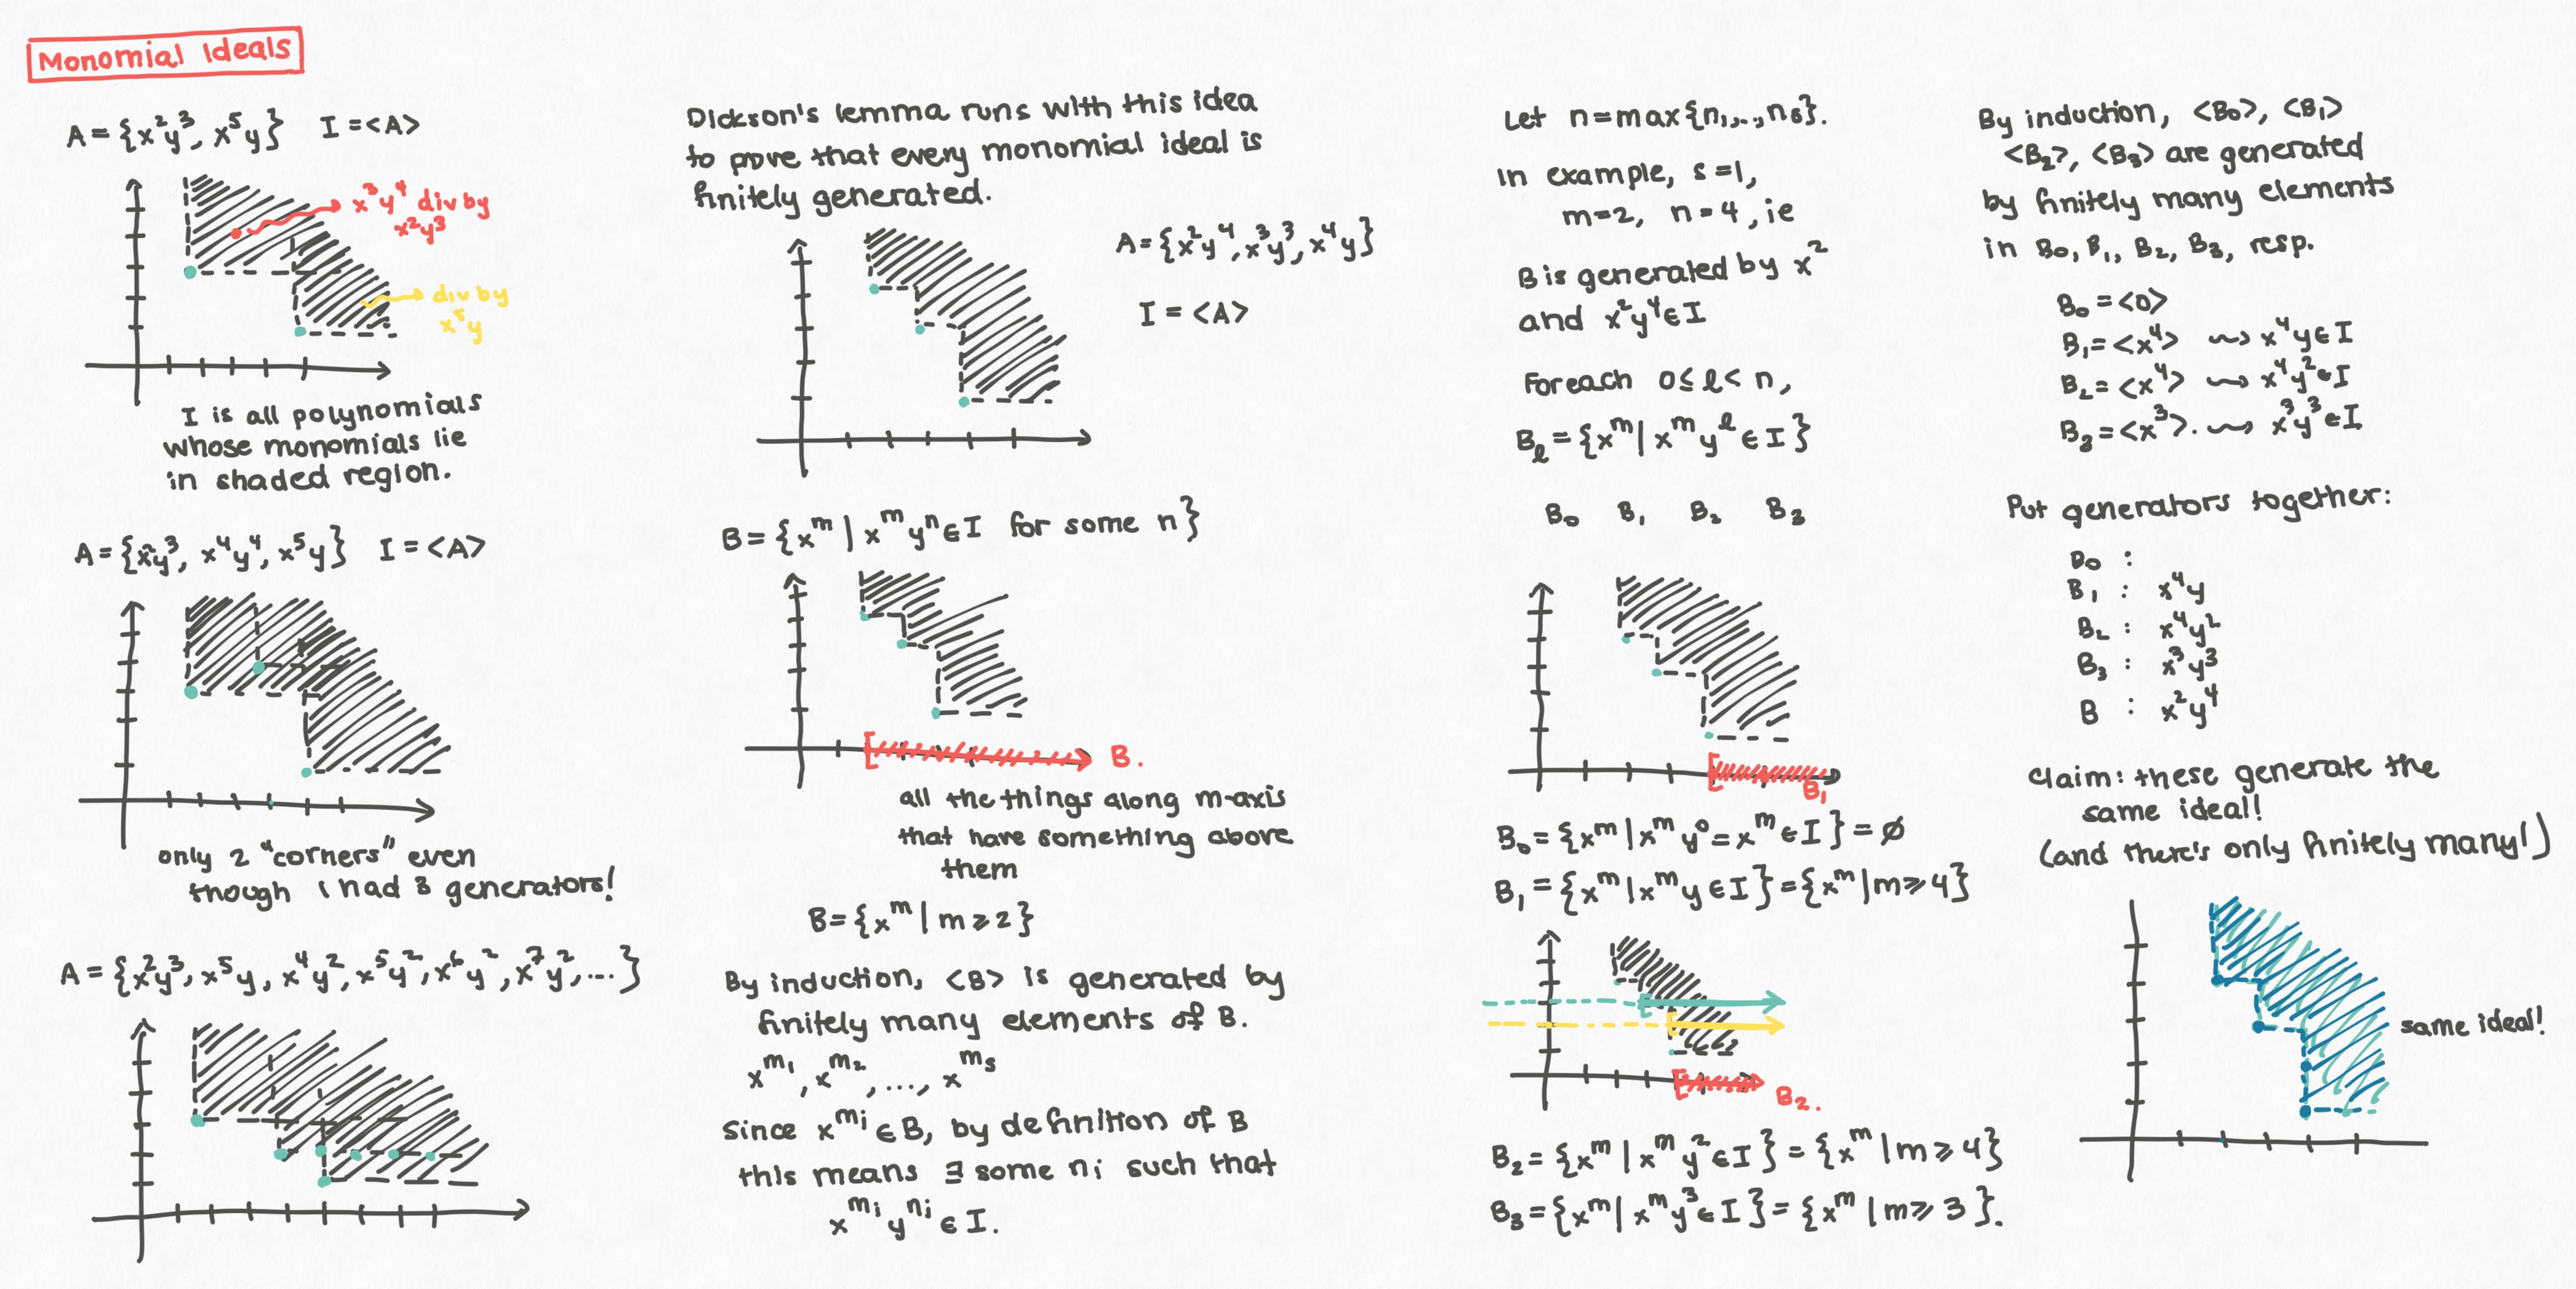 Monomial Ideals
A = {x²y³, x⁵y} I = <A>
x³y⁴ div by
x²y³
div by
x⁵y
I is all polynomials
whose monomials lie
in shaded region.
A = {x²y³, x⁴y⁴, x⁵y} I = <A>
only 2 "corners" even
though I had 3 generators!
A = {x²y³, x⁵y, x⁴y², x⁵y², x⁶y², x⁷y², ...}
Dickson's lemma runs with this idea
to prove that every monomial ideal is
finitely generated.
A = {x²y⁴, x³y³, x⁴y}
I = <A>
B = {xᵐ | xᵐyⁿ ∈ I for some n}
B.
all the things along m-axis
that have something above
them
B = {xᵐ | m ≥ 2}
By induction, <B> is generated by
finitely many elements of B.
x^m₁, x^m₂, ..., x^mₛ
Since x^mᵢ ∈ B, by definition of B
this means ∃ some nᵢ such that
x^mᵢ y^nᵢ ∈ I.
Let n = max{n₁,..,nₛ}.
In example, s = 1,
m = 2, n = 4, ie
B is generated by x²
and x²y⁴ ∈ I
For each 0 ≤ ℓ < n,
B_ℓ = {xᵐ | xᵐ y^ℓ ∈ I}
B₀ B₁ B₂ B₃
B₁
B₀ = {xᵐ | xᵐy⁰ = xᵐ ∈ I} = ∅
B₁ = {xᵐ | xᵐy ∈ I} = {xᵐ | m ≥ 4}
B₂.
B₂ = {xᵐ | xᵐy² ∈ I} = {xᵐ | m ≥ 4}
B₃ = {xᵐ | xᵐy³ ∈ I} = {xᵐ | m ≥ 3}.
By induction, <B₀>, <B₁>
<B₂>, <B₃> are generated
by finitely many elements
in B₀, B₁, B₂, B₃, resp.
B₀ = <0>
B₁ = <x⁴> ⇝ x⁴y ∈ I
B₂ = <x⁴> ⇝ x⁴y² ∈ I
B₃ = <x³>. ⇝ x³y³ ∈ I
Put generators together:
B₀ :
B₁ : x⁴y
B₂ : x⁴y²
B₃ : x³y³
B : x²y⁴
Claim: these generate the
same ideal!
(and there's only finitely many!)
same ideal!